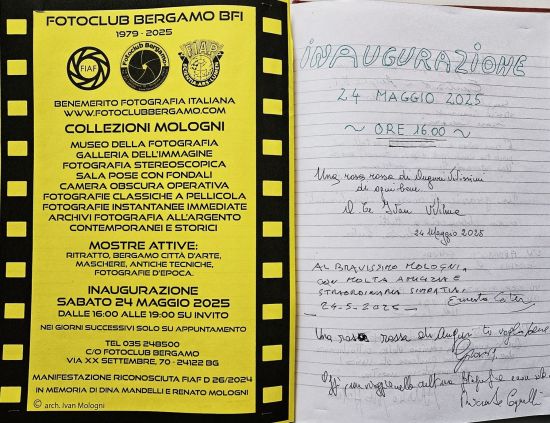 FOTOCLUB BERGAMO BFI
1979 - 2025
FIAF
Fotoclub Bergamo
FIAP
BENEMERITO FOTOGRAFIA ITALIANA
WWW.FOTOCLUBBERGAMO.COM
COLLEZIONI MOLOGNI
MUSEO DELLA FOTOGRAFIA
GALLERIA DELL'IMMAGINE
FOTOGRAFIA STEREOSCOPICA
SALA POSE CON FONDALI
CAMERA OBSCURA OPERATIVA
FOTOGRAFIE CLASSICHE A PELLICOLA
FOTOGRAFIE INSTANTANEE IMMEDIATE
ARCHIVI FOTOGRAFIA ALL'ARGENTO
CONTEMPORANEI E STORICI
MOSTRE ATTIVE:
RITRATTO, BERGAMO CITTÀ D'ARTE,
MASCHERE, ANTICHE TECNICHE,
FOTOGRAFIE D'EPOCA.
INAUGURAZIONE
SABATO 24 MAGGIO 2025
DALLE 16:00 ALLE 19:00 SU INVITO
NEI GIORNI SUCCESSIVI SOLO SU APPUNTAMENTO
TEL 035 248500
C/O FOTOCLUB BERGAMO
VIA XX SETTEMBRE, 70 - 24122 BG
MANIFESTAZIONE RICONOSCIUTA FIAF D 26/2024
IN MEMORIA DI DINA MANDELLI E RENATO MOLOGNI
© arch. Ivan Mologni
INAUGURAZIONE
24 MAGGIO 2025
~ ORE 16.00 ~
Una rosa rossa di Auguri
di ogni bene
A Te Ivan
24 Maggio 2025
AL BRAVISSIMO MOLOGNI,
CON MOLTA AMICIZIA E
STRAORDINARIA SIMPATIA!
24-5-2025 - Ernesto
Una rosa rossa di Auguri ti voglio bene
cultura